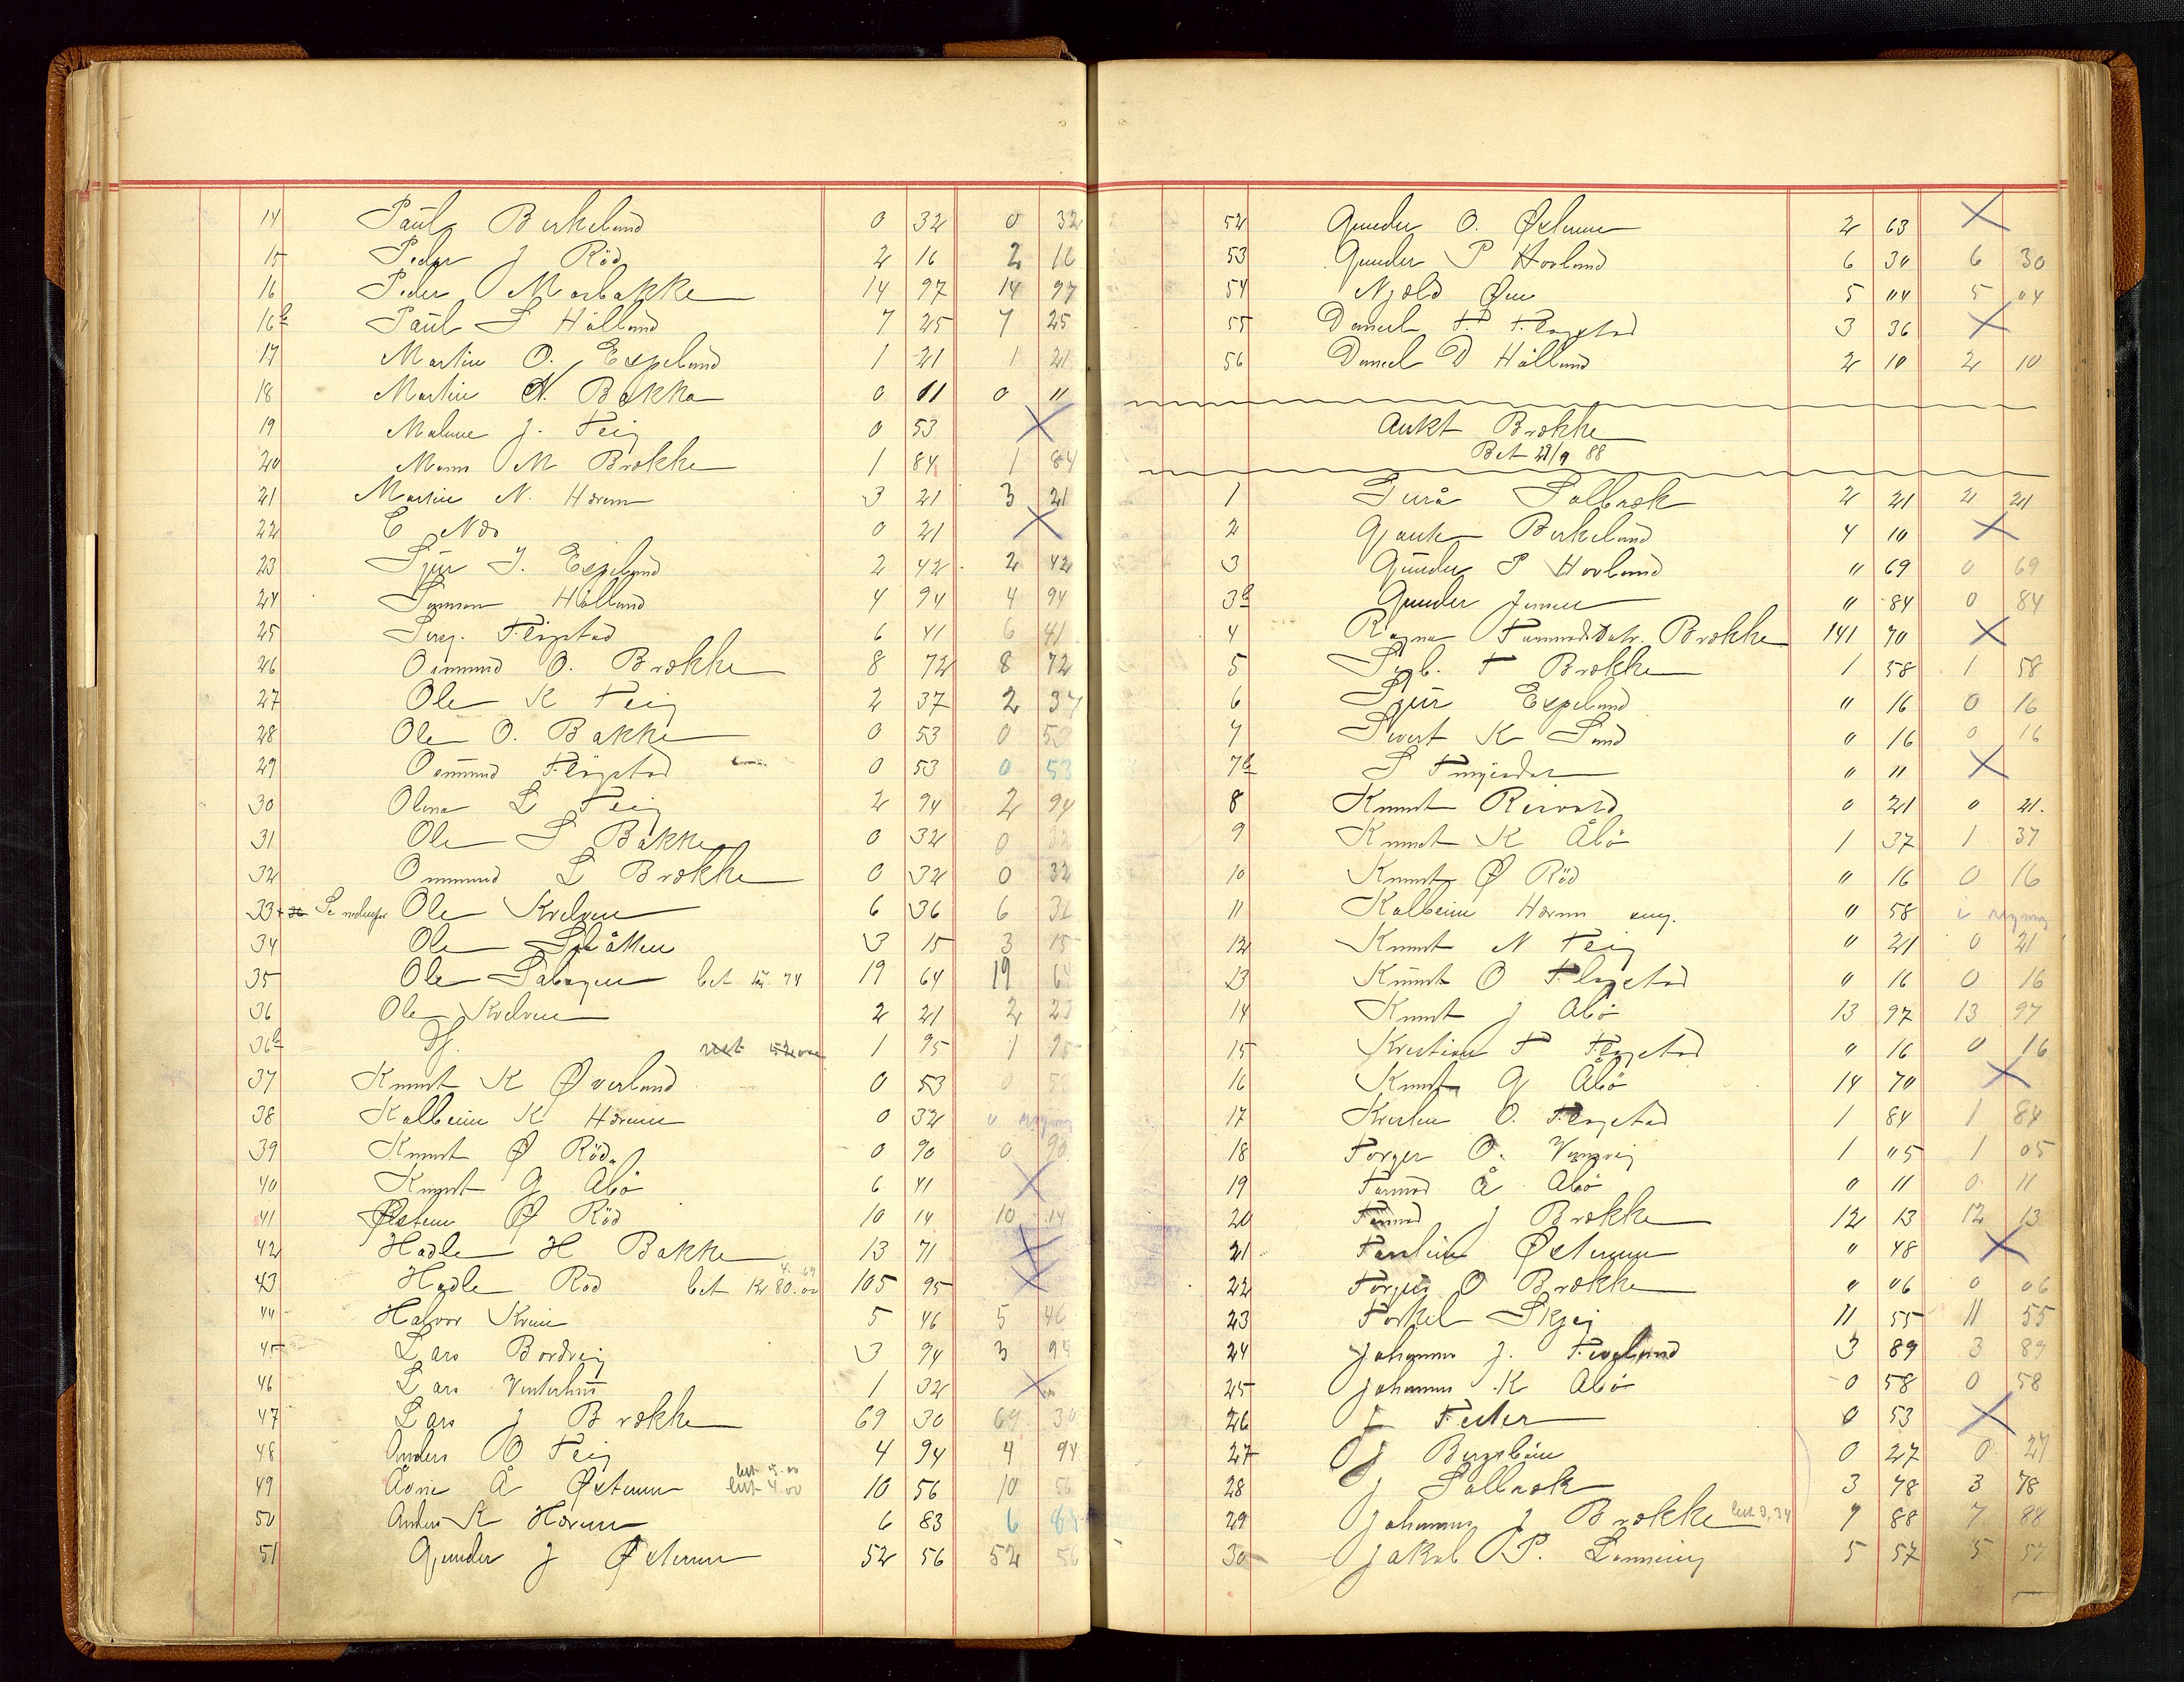 14 Paul Birkeland 0 32 0 32
15 Peder J Röd 2 16 2 16
16 Peder Morbakke 14 97 14 97
16b Paul S Hålland 7 25 7 25
17 Martin O. Espeland 1 21 1 21
18 Martin N. Bakka 0 11 0 11
19 Malene J. Teig 0 53 X
20 Mons M Brække 1 84 1 84
21 Martin N. Hærem 3 21 3 21
22 E Næs 0 21 X
23 Sjur I. Espeland 2 42 2 42
24 Hålland 4 94 4 94
25 Serg. Tlögstad 6 41 6 41
26 Osmund O. Brække 8 72 8 72
27 Ole K Teig 2 37 2 37
28 Ole O. Bakke 0 53 0 53
29 Osmund Tlögstad 0 53 0 53
30 Olena L Teig 2 94 2 94
31 Ole S Bakke 0 32 0 32
32 Osmund L Brække 0 32 0 32
33 Se nedenfor Ole Kvelven 6 36 6 36
34 Ole Slåtten 3 15 3 15
35 Ole Sabøyen bet 74 19 64 19 64
36 Ole Kvelven 2 21 2 21
36b Df. rest 52 øre 1 95 1 95
37 Knud K Øverland 0 53 0 53
38 Kolbein K Hærem 0 32
39 Knud Ø Röd 0 90 0 90
40 Knud G Åbö 6 41 X
41 Østen Ø Röd 10 14 10 14
42 Hadle H Bakke 13 71 X
43 Hadle Röd bet Kr 80.00 105 95 X
44 Halvor 5 46 5 46
45 Lars Bordvig 3 94 3 94
46 Lars Vinterhus 1 32 X
47 Lars J Brække 69 30 69 30
48 Anders O Teig 4 94 4 94
49 Å Østrem bet 4.00 10 56 10 56
50 Anders K Hærem 6 83 6 83
51 Gunder J Østrem 52 56 52 56
52 Gunder O. Østrem 2 63 X
53 Gunder P Hovland 6 30 6 30
54 Njold Øen 5 04 5 04
55 Daniel T. Flogstad 3 36 X
56 Daniel D Hålland 2 10 2 10
Aukt Brække
Bet 28/9 88
1 Turå Solbræk 2 21 2 21
2 Gjaut Birkeland 4 10 X
3 Gunder P Hovland " 69 0 69
3b Gunder Jensen " 84 0 84
4 Ragna Tormodsdatr. Brække 141 70 X
5 Sigb. T Brække 1 58 1 58
6 Sjur Espeland " 16 0 16
7 Sivert K Sand " 16 0 16
7b S Tungesdal " 11 X
8 Knud Reivold 0 21 0 21.
9 Knud K Åbö 1 37 1 37
10 Knud Ø Röd " 16 0 16
11 Kolbein Hærem ung. " 58
12 Knud N Teig " 21 0 21
13 Knud O Flogstad " 16 0 16
14 Knud J Åbö 13 97 13 97
15 Kristian T Flogstad " 16 0 16
16 Knud G Åbö 14 70 X
17 Kristen O. Flogstad 1 84 1 84
18 Torger O. Vangvig 1 05 1 05
19 Tormod Å Åbö " 11 0 11
20 Tormod J Brække 12 13 12 13
21 Østrem " 48 X
22 Torger O Brække " 06 0 06
23 Torkel Skjeg 11 55 11 55
24 Johannes J. Tveland 3 89 3 89
25 Johannes K Åbö 0 58 0 58
26 Fester 0 53 X
27 J Bergsbøen 0 27 0 27
28 J Solbræk 3 78 3 78
29 Johannes J Brække bet 3,34 7 88 7 88
30 Jakob P. Lønning 5 57 5 57